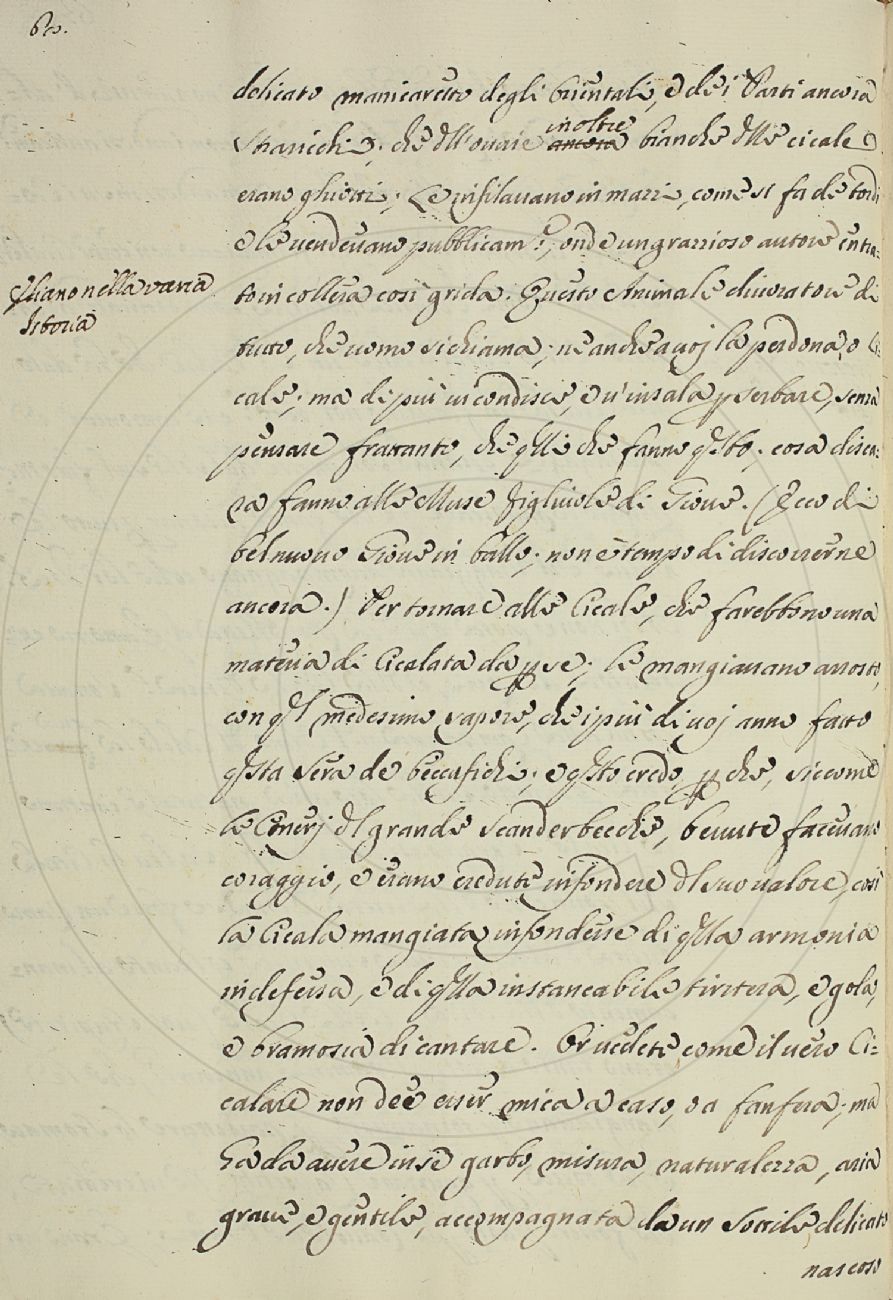 60.
delicato manicaretto degli Orientali, e de i Parti ancora
Straricchi; che dll'ovaie inoltre bianche dlle cicale
erano ghiotti; Le infilavano in mazzi, come si fa de tordi
e le vendevano pubblicam.te, onde un grazioso autore entra-
Eliano nella varia
Istoria
to in collera così grida. Questo Animale divoratore di
tutto, che uomo si chiama; ne anche a voj la perdona, o Ci-
cale; ma di più vi condisce, e v'insala p serbare, senza
pensare frattanto, che qlli che fanno qsto, cosa disca-
ra fanno alle Muse figliuole di Giove. (Ecco di
bel nuovo Giove in ballo; non è tempo di discorrerne
ancora.) Per tornare alle Cicale, che farebbono una
materia di Cicalata da p se; le mangiavano arrosto,
con ql medesimo sapore, che i più di voj anno fatto
qsta sera de beccafichi; e qsto credo p che, siccome
le Cenerj dl grande Scanderbecche, bevute facevano
coraggio, e erano credute infondere dl suo valore, così
la Cicala mangiata infondesse di qlla armonia
indefessa, e di qlla instancabile tiritera, e gola,
e bramosia di cantare. Or vedete come il vero Ci-
calare non dee esser mica a caso, o a fanfera; ma
ha da avere in se garbo, misura, naturalezza, aria
grave, e gentile, accompagnata da un sottile, delicato
nascoso